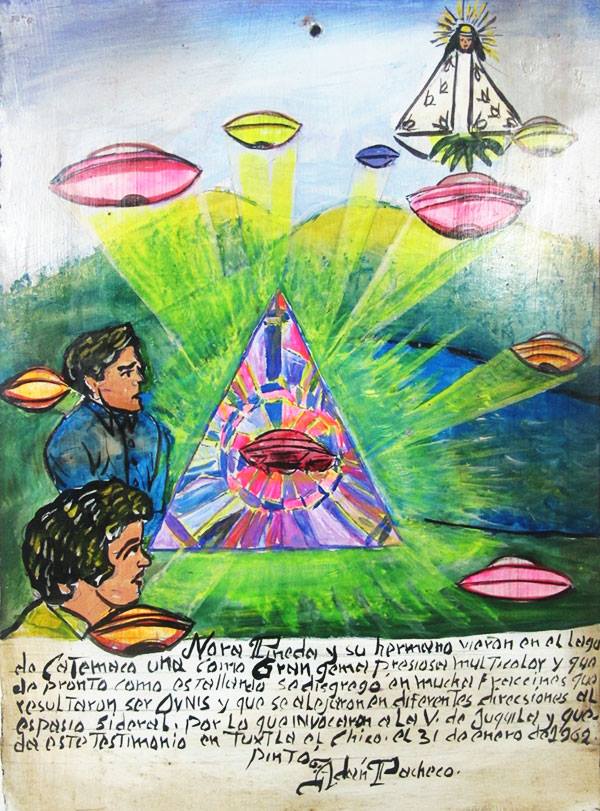 Nora Pineda y su hermano vieron en el lago
de Catemaco una como Gran gema presiosa multicolor y que
de pronto como estallando sedisgregó en mucha fracciines que
resultaron ser OVNIS y que se alejaron en diferentes direcsiones al
espasio sideral. Por lo que invocaron a la V. de Juquila y que-
da este Testimonio en Tuxtla el Chico. el 31 de enero de 1962.
pintó,
Adán Pacheco.